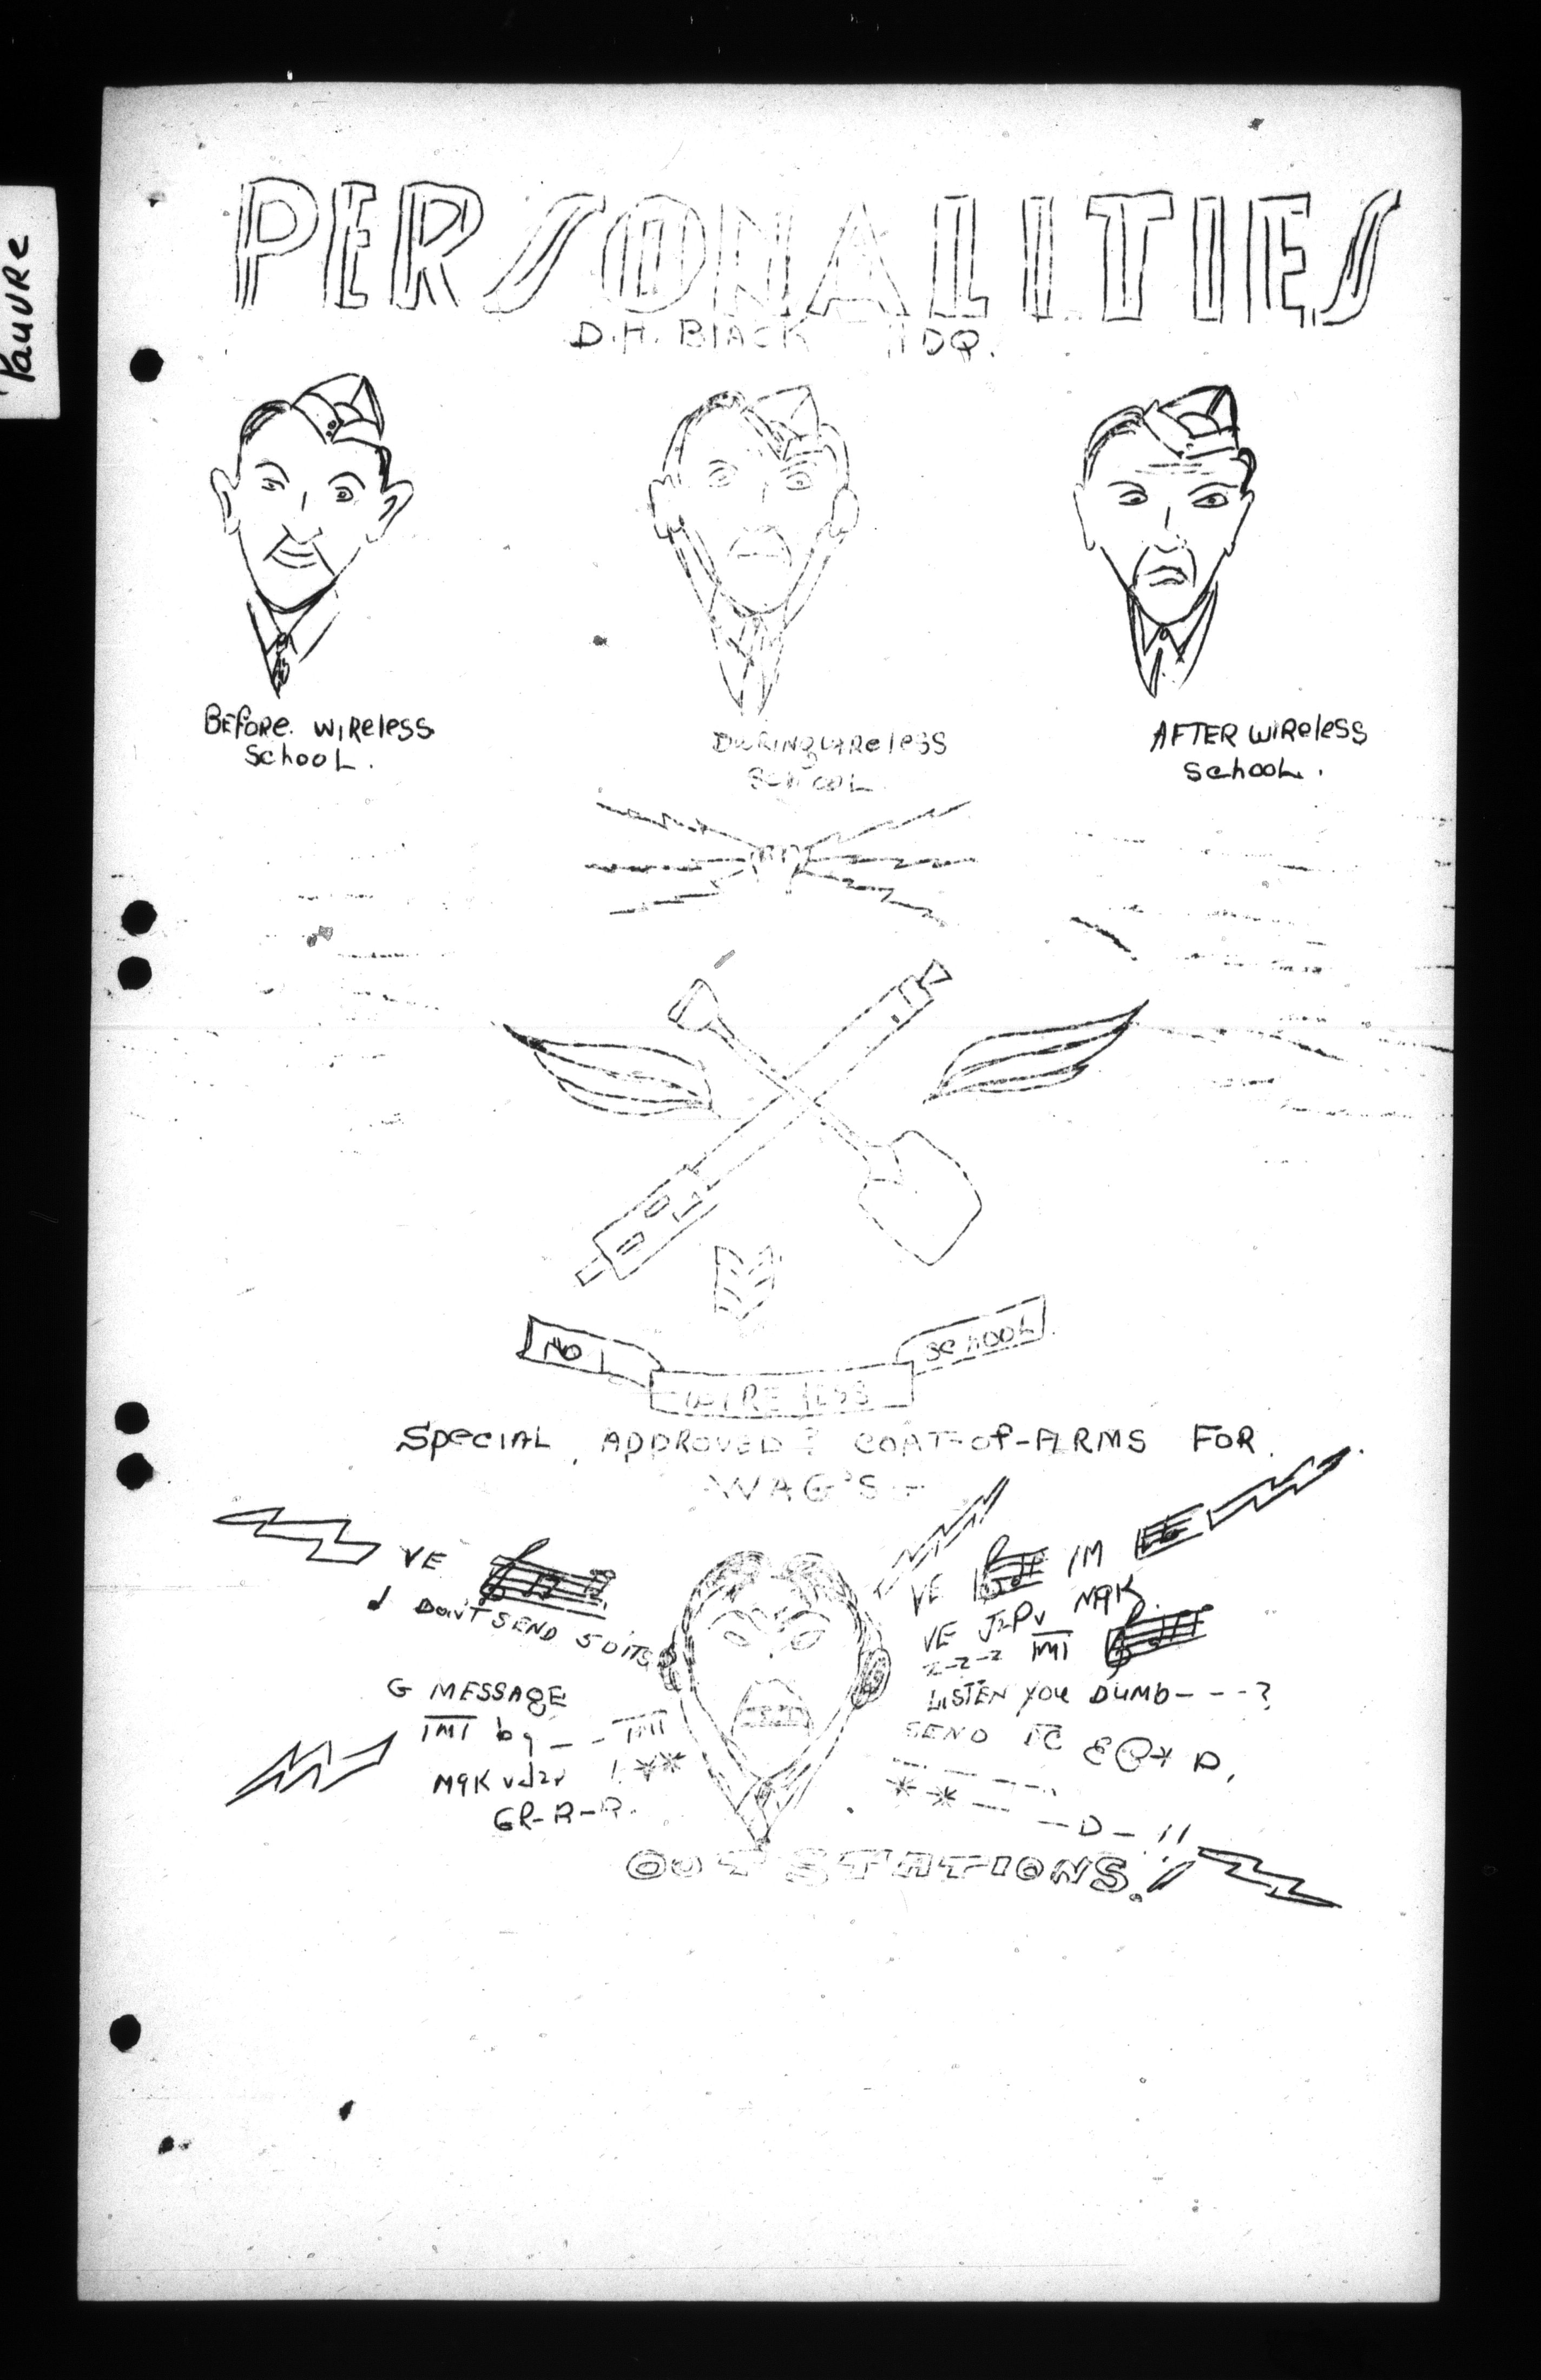 Pauvre
PERSONALITIES
D.H. BlACK HDQ.
BEfORe. WIRelesS
School.
DURINg WIRelesS
SCHOOL.
AFTER WIRelesS
School.
NO 1
WIRELESS
SCHOOL
SpeCIAL APPROVED? COAT-Of-ARMS FOR
WAG'S-
VE
DON'T SEND 5 DITS
G MESSAGE
IMI
IMI
M9K
GR-R-R.
VE IM
VE M9K
Z-Z-Z IMI
LISTEN YOU DUMb---?
SEND
** --
-D-!!
OUT STATIONS!